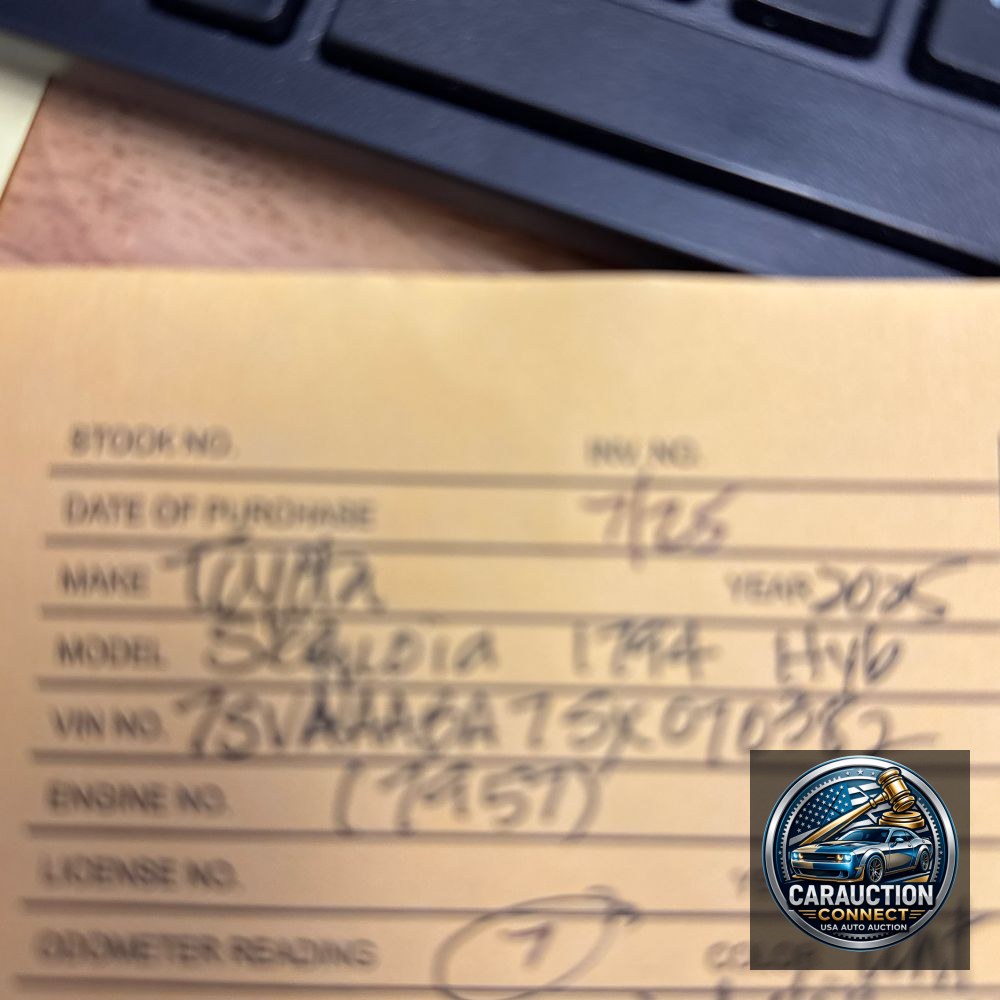 STOCK NO. INV. NO.
DATE OF PURCHASE 7/25
MAKE Toyota YEAR 2025
MODEL Sequoia 1794 Hyb
VIN NO.
ENGINE NO. (7957)
LICENSE NO.
ODOMETER READING 7 COLOR
CARAUCTION
CONNECT
USA AUTO AUCTION